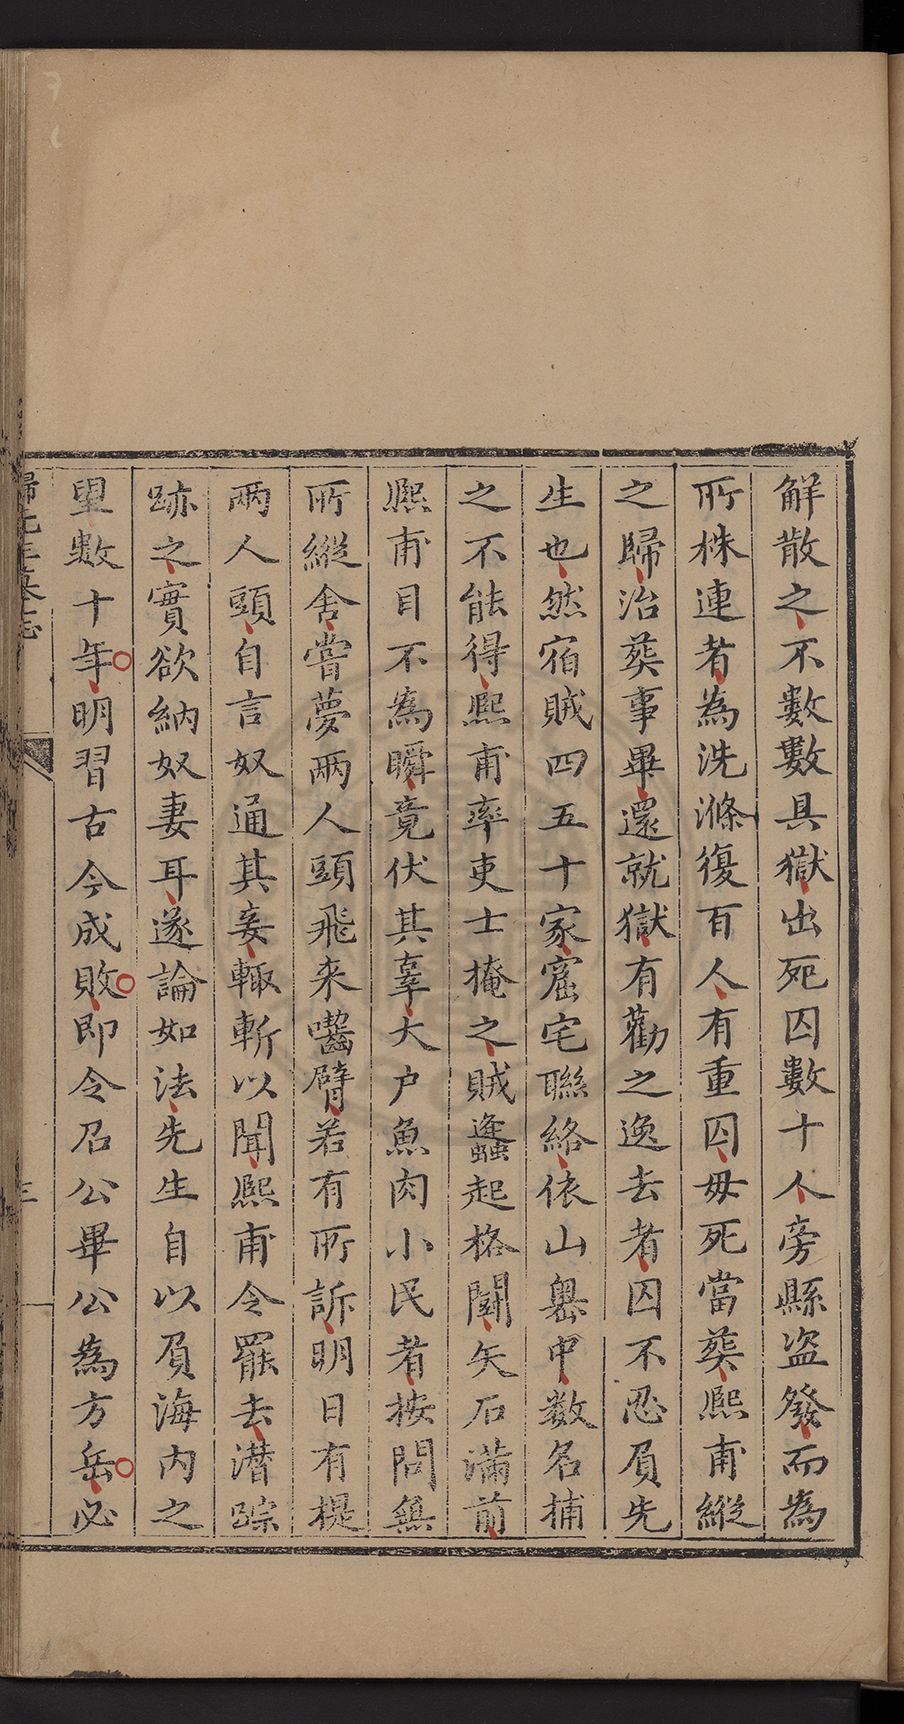 解散之不數數具獄出死囚數十人旁縣盜發而為
所株連者為洗滌復百人有重囚毋死當葬熙甫縱
之歸治葬事畢還就獄有勸之逸去者囚不忍負先
生也然宿賊四五十家窟宅聯絡依山嶴中数名捕
之不能得熙甫率吏士掩之賊蠭起格鬭矢石滿前
熙甫目不為瞬竟伏其辜大户魚肉小民者按問無
所縱舍嘗夢兩人頭飛来嚙臂若有所訴明日有提
兩人頭自言奴通其妾輙斬以聞熙甫令罷去潜踪
跡之實欲納奴妻耳遂論如法先生自以負海内之
望數十年明習古今成敗即令召公畢公為方岳必
歸先生墓誌
三